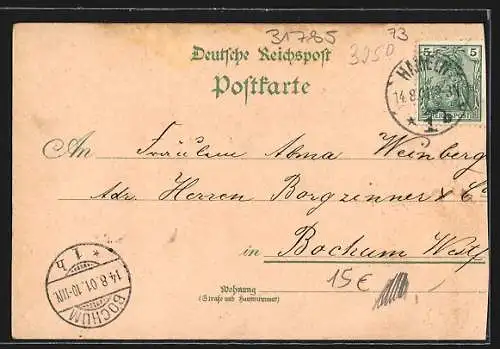 31785
73
3250
Deutsche Reichspost
Postkarte
5 5
HAMELN
14.8.01
* 1 b
REICHSPOST
An Fräulein Alma Weinberg
Adr. Herren Borgzinner & Co
in Bochum Westf
* 1 h
14.8.01.10-11N.
BOCHUM
15€
Wohnung
(Straße und Hausnummer)